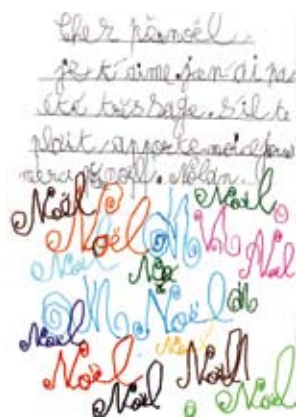 Cher pèrnoël.
je t'aime j'en ai pa
été tres sage. s'il te
plait apporte moi
merci Nolan.
Noël
Noël N N Noël
Noël Noël
N Noël N
Noël Noël
Noël Noël
Noël Noël